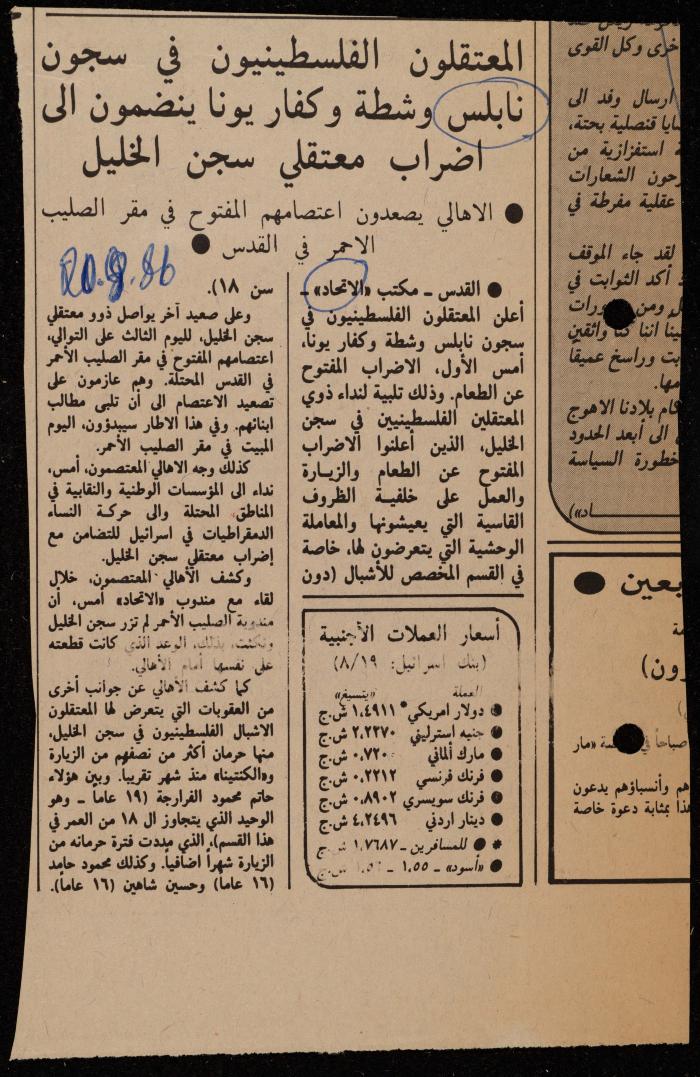 المعتقلون الفلسطينيون في سجون
نابلس وشطة وكفار يونا ينضمون الى
اضراب معتقلي سجن الخليل
● الاهالي يصعدون اعتصامهم المفتوح في مقر الصليب
الاحمر في القدس ●
20.8.86
● القدس ـ مكتب «الاتحاد» ـ
أعلن المعتقلون الفلسطينيون في
سجون نابلس وشطة وكفار يونا،
أمس الأول، الاضراب المفتوح
عن الطعام. وذلك تلبية لنداء ذوي
المعتقلين الفلسطينيين في سجن
الخليل، الذين أعلنوا الاضراب
المفتوح عن الطعام والزيارة
والعمل على خلفية الظروف
القاسية التي يعيشونها والمعاملة
الوحشية التي يتعرضون لها، خاصة
في القسم المخصص للأشبال (دون
سن ١٨).
وعلى صعيد آخر يواصل ذوو معتقلي
سجن الخليل، لليوم الثالث على التوالي،
اعتصامهم المفتوح في مقر الصليب الأحمر
في القدس المحتلة. وهم عازمون على
تصعيد الاعتصام الى أن تلبى مطالب
ابنائهم. وفي هذا الاطار سيبدؤون، اليوم
المبيت في مقر الصليب الأحمر.
كذلك وجه الاهالي المعتصمون، أمس،
نداء الى المؤسسات الوطنية والنقابية في
المناطق المحتلة والى حركة النساء
الدمقراطيات في اسرائيل للتضامن مع
إضراب معتقلي سجن الخليل.
وكشف الأهالي المعتصمون، خلال
لقاء مع مندوب «الاتحاد» أمس، أن
مندوبة الصليب الأحمر لم تزر سجن الخليل
ونكثت، بذلك، الوعد الذي كانت قطعته
على نفسها أمام الأهالي.
كما كشف الأهالي عن جوانب أخرى
من العقوبات التي يتعرض لها المعتقلون
الاشبال الفلسطينيون في سجن الخليل،
منها حرمان أكثر من نصفهم من الزيارة
و«الكنتينا» منذ شهر تقريبا. وبين هؤلاء
حاتم محمود الفرارجة (١٩ عاما ـ وهو
الوحيد الذي يتجاوز ال ١٨ من العمر في
هذا القسم)، الذي مددت فترة حرمانه من
الزيارة شهراً اضافياً. وكذلك محمود حامد
(١٦ عاما) وحسين شاهين (١٦ عاما).
أسعار العملات الأجنبية
(بنك اسرائيل: ٨/١٩)
العملة
● دولار امريكي ١,٤٩١١ ش.ج
● جنيه استرليني ٢,٢٢٧٠ ش.ج
● مارك ألماني ش.ج
● فرنك فرنسي ٠,٢٢١٢ ش.ج
● فرنك سويسري ٠,٨٩٠٢ ش.ج
● دينار اردني ٤,٢٤٩٦ ش.ج
* ● للمسافرين ـ ١,٧٦٨٧ ش.ج
● «أسود» ـ ١,٥٥ ـ ش.ج
خرى وكل القوى
ارسال وفد الى
قنصلية بحتة،
استفزازية من
الشعارات
عقلية مفرطة في
لقد جاء الموقف
أكد الثوابت في
ومن
اننا كنا واثقين
وراسخ عميقاً
بلادنا الاهوج
الى أبعد الحدود
خطورة السياسة
صباحاً
وأنسباؤهم يدعون
بمثابة دعوة خاصة